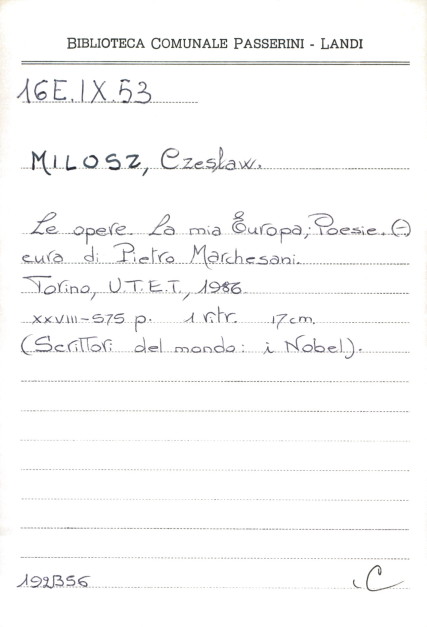 BIBLIOTECA COMUNALE PASSERINI - LANDI
16E.IX.53
MILOSZ, Czesław.
Le opere. La mia Europa; Poesie. (-)
cura di Pietro Marchesani.
Torino, U.T.E.T., 1986
XXVIII-575 p. 1 ritr. 17 cm.
(Scrittori del mondo: i Nobel).
192356
C